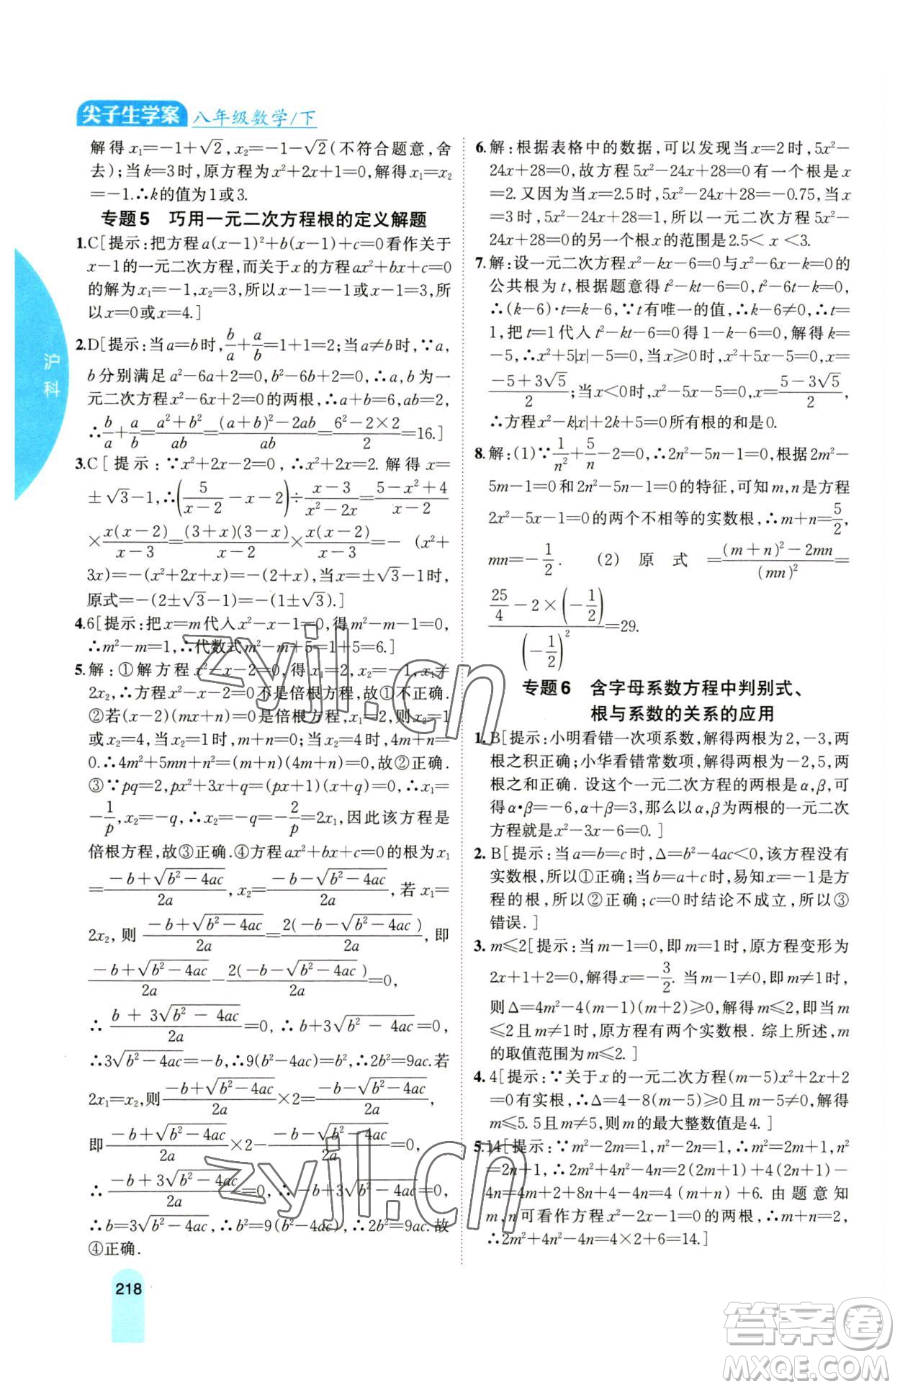 尖子生学案 八年级数学/下
解得 x₁=-1+√2, x₂=-1-√2(不符合题意,舍
去);当 k=3时,原方程为 x²+2x+1=0,解得 x₁=x₂
=-1.∴k的值为1或3.
专题5 巧用一元二次方程根的定义解题
1.C[提示:把方程 a(x-1)²+b(x-1)+c=0看作关于
x-1的一元二次方程,而关于 x的方程 ax²+bx+c=0
的解为 x₁=-1,x₂=3,所以x-1=-1或x-1=3,所
以x=0或4.]
2.D[提示:当a=b时,b/a+a/b=1+1=2;当a≠b时,∵a,
b分别满足 a²-6a+2=0,b²-6b+2=0,∴a,b可看成一
元二次方程 x²-6x+2=0的两根,∴a+b=6,ab=2,
∴b/a+a/b=(a²+b²)/ab=((a+b)²-2ab)/ab=(6²-2×2)/2=16.]
3.C[提示:∵x²+2x-2=0,∴x²=2-2x.解得 x=
±√3-1,∴(5/(x-2)-x-2)÷(x-3)/(x²-2x)=(5-x²+4)/(x-2)
×x(x-2)/(x-3)=(3+x)(3-x)/(x-2)×x(x-2)/(x-3)=-(x²+
3x)=-(2-2x+3x)=-(2+x),当x=±√3-1时,
原式=-(2±√3-1)=-(1±√3).]
4.6[提示:把x=m代入x²-x-1=0,得 m²-m-1=0,
∴m²-m=1,∴代数式m²-m+5=1+5=6.]
5.解:①解方程 x²-x-2=0,得 x₁=2,x₂=-1,∴x₁≠
2x₂,∴方程x²-x-2=0不是倍根方程,故①不正确.
②若(x-2)(mx+n)=0是倍根方程,x₁=2,则x₂=1或
x₂=4,当x₂=1时,m+n=0,当x₂=4时,4m+n=0,∴
4m²+5mn+n²=(4m+n)(m+n)=0,故②正确.
③∵pq=2,px²+3x+q=0,∴(px+1)(x+q)=0,∴x₁=
-1/p,x₂=-q,∴x₂=-q=-2/p=2x₁,因此该方程是
倍根方程,故③正确.④方程 ax²+bx+c=0的根为 x₁
=(-b+√(b²-4ac))/2a,x₂=(-b-√(b²-4ac))/2a,若 x₁=
2x₂,则 (-b+√(b²-4ac))/2a=2(-b-√(b²-4ac))/2a,即
(-b+√(b²-4ac))/2a-2(-b-√(b²-4ac))/2a=0,
∴(b+3√(b²-4ac))/2a=0,∴b+3√(b²-4ac)=0,
∴3√(b²-4ac)=-b,∴9(b²-4ac)=b²,∴2b²=9ac.若
2x₁=x₂时,则(-b+√(b²-4ac))/2a×2=(-b-√(b²-4ac))/2a,
即(-b+√(b²-4ac))/2a×2-(-b-√(b²-4ac))/2a=0,
∴(-b+3√(b²-4ac))/2a=0,∴-b+3√(b²-4ac)=0,
∴b=3√(b²-4ac),∴b²=9(b²-4ac),∴2b²=9ac.故
④正确.
6.解:根据表格中的数据,可以发现当x=2时,5x²-
24x+28=0,故方程5x²-24x+28=0的一个根是x
=2.又因为当x=2.5时,5x²-24x+28=-0.75,当x
=3时,5x²-24x+28=1,所以一元二次方程5x²-
24x+28=0的另一个根x的范围是2.5<x<3.
7.解:设一元二次方程 x²-kx-6=0与x²-6x-k=0的
公共根为t,根据题意得t²-kt-6=0,t²-6t-k=0,
∴(k-6)·t=k-6.∵t有唯一的值,∴k-6≠0,t=
1,把t=1代入t²-kt-6=0得1-k-6=0,解得k=
-5,∴x²+5|x|-5=0.当x≥0时,x²+5x-5=0,x=
(-5+3√5)/2;当x<0时,x²-5x-5=0,x=(5-3√5)/2,
∴方程x²-k|x|+2k+5=0所有根的和是0.
8.解:(1)∵1/n²+5/n-2=0,∴2n²-5n-1=0.根据2m²-
5m-1=0和2n²-5n-1=0的特征,可知m,n是方程
2x²-5x-1=0的两个不相等的实数根,∴m+n=5/2,
mn=-1/2. (2)原式=((m+n)²-2mn)/(mn)²=
(25/4-2×(-1/2))/(-1/2)²=29.
专题6 含字母系数方程中判别式、
根与系数的关系的应用
1.B[提示:小明看错一次项系数,解得两根为2,-3,两
根之积正确;小华看错常数项,解得两根为-2,5,两
根之和正确.设这个一元二次方程的两根是α,β,可
得α·β=-6,α+β=3,所以以α,β为两根的一元二次
方程就是x²-3x-6=0.]
2.B[提示:当a=b=c时,Δ=b²-4ac<0,该方程没有
实数根,所以①正确;当b=a+c时,x=-1是该方
程的根,所以②正确;当c=0时结论不成立,所以③
错误.]
3.m≤2[提示:当m-1=0,即m=1时,原方程变形为
2x+1+2=0,解得x=-3/2.当m-1≠0,即m≠1时,
则Δ=4m²-4(m-1)(m+1)≥0,解得m≤2
且m≠1时,原方程有两个实数根.综上所述,m
的取值范围为m≤2.]
4.4[提示:∵关于x的一元二次方程(m-5)x²+2x+2
=0有实根,∴Δ=4-8(m-5)≥0,且m-5≠0,解得m
≤5.5且m≠5,则m的最大整数值是4.]
5.14[提示:∵m²-2m=1,n²-2n=1,∴m²=2m+1,n²
=2n+1,∴2m²+4n²-4n=2(2m+1)+4(2n+1)-
4n=4m+2+8n+4-4n=4(m+n)+6.由题意知
m,n可看作方程x²-2x-1=0的两根,∴m+n=2,
∴2m²+4n²-4n=4×2+6=14.]
沪科
218
zyjl.cn
zyjl.cn
答案圈
MXQE.COM